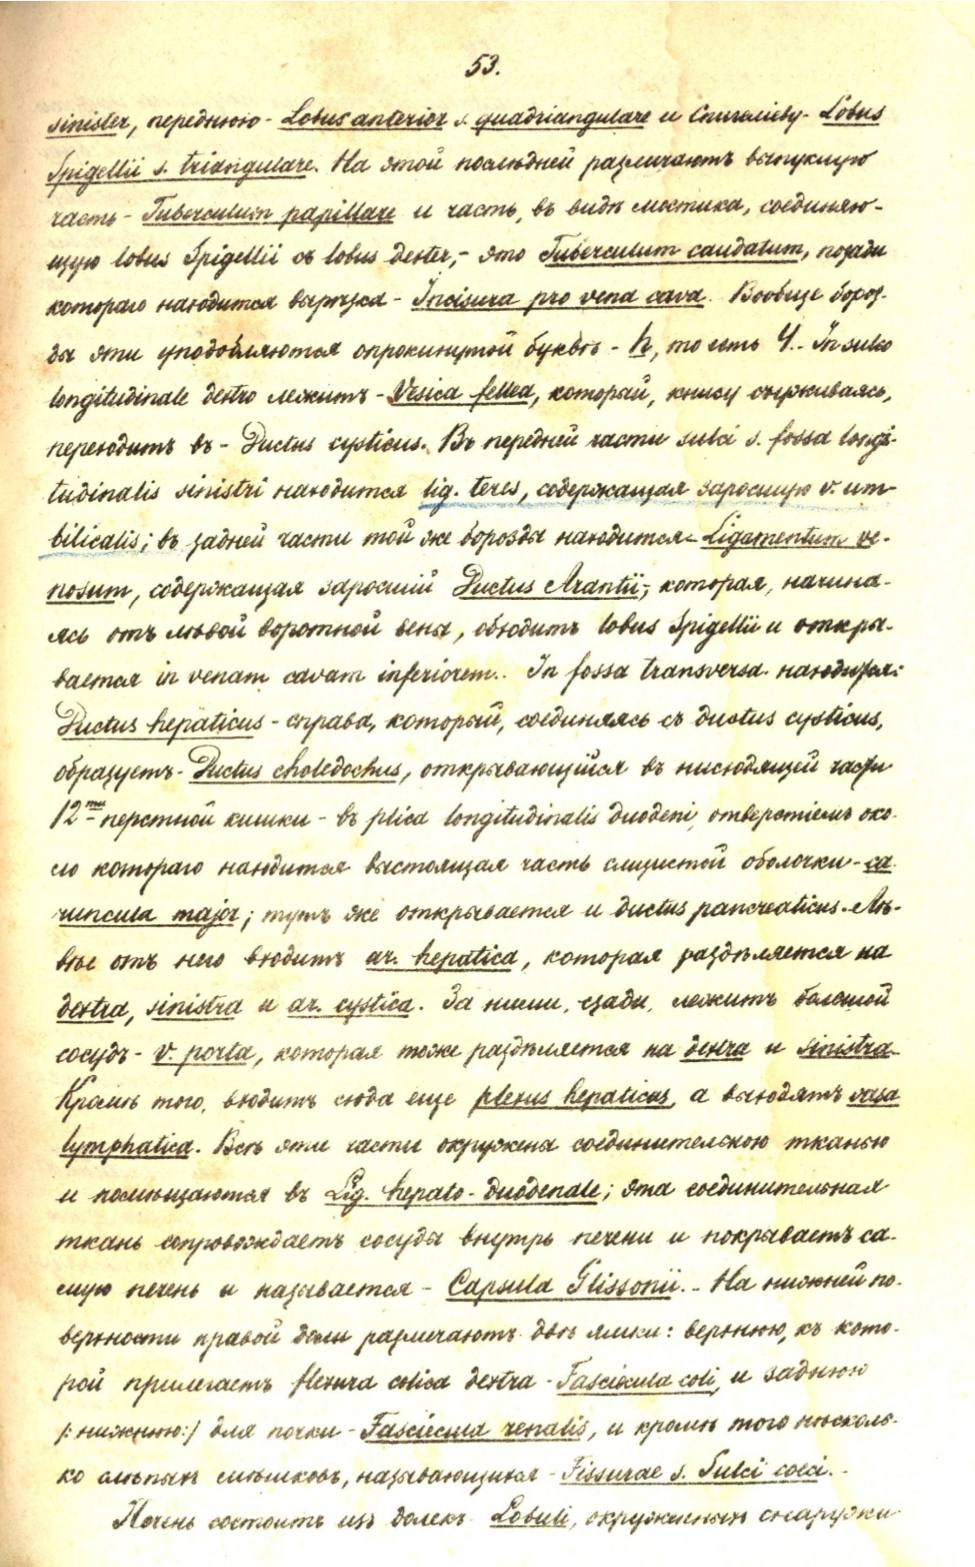 53.
sinister, переднюю - Lobus anterior s. quadriangulare и Спигелiеву - Lobus
Spigellii s. triangulare. На этой послѣдней различаютъ выпуклую
часть - Tuberculum papillare и часть, въ видѣ мостика, соединяю-
щую lobus Spigellii съ lobus dexter, - это Tuberculum caudatum, позади
котораго находится вырѣзка - Incisura pro vena cava. Вообще бороз-
ды эти уподобляются опрокинутой буквѣ - h, то есть Ч. - In sulco
longitudinale dextro лежитъ - Vesica fellea, который, книзу съуживаясь,
переходитъ въ - Ductus cysticus. Въ передней части sulci s. fossa longi-
tudinalis sinistri находится lig. teres, содержащая заросшую v. um-
bilicalis; въ задней части той же борозды находится - Ligamentum ve-
nosum, содержащая заросшiй Ductus Arantii, которая, начина-
ясь отъ лѣвой воротной вены, обходитъ lobus Spigellii и откры-
вается in venam cavam inferiorem. In fossa transversa находится:
Ductus hepaticus - справа, который, соединяясь съ ductus cysticus,
образуетъ - Ductus choledochus, открывающiйся въ нисходящей части
12ти перстной кишки - въ plica longitudinalis duodeni, отверстiемъ око-
ло котораго находится выстоящая часть слизистой оболочки - ca-
runcula major; тутъ же открывается и ductus pancreaticus. Лѣ-
вѣе отъ него входитъ ar. hepatica, которая раздѣляется на
dextra, sinistra и ar. cystica. За ними, сзади, лежитъ большой
сосудъ - v. porta, которая тоже раздѣляется на dextra и sinistra.
Кромѣ того, входитъ сюда еще plexus hepaticus, а выходятъ vasa
lymphatica. Всѣ эти части окружены соединительною тканью
и помѣщаются въ Lig. hepato-duodenale; эта соединительная
ткань сопровождаетъ сосуды внутрь печени и покрываетъ са-
мую печень и называется - Capsula Glissonii. - На нижней по-
верхности правой доли различаютъ двѣ ямки: верхнюю, къ кото-
рой прилегаетъ flexura colica dextra - Fasciecula coli, и заднюю
/: нижнюю:/ для почки - Fasciecula renalis, и кромѣ того нѣсколь-
ко слѣпыхъ мѣшковъ, называющихся - Fissurae s. Sulci coeci. -
Печень состоитъ изъ долекъ Lobuli, окруженныхъ снаружи